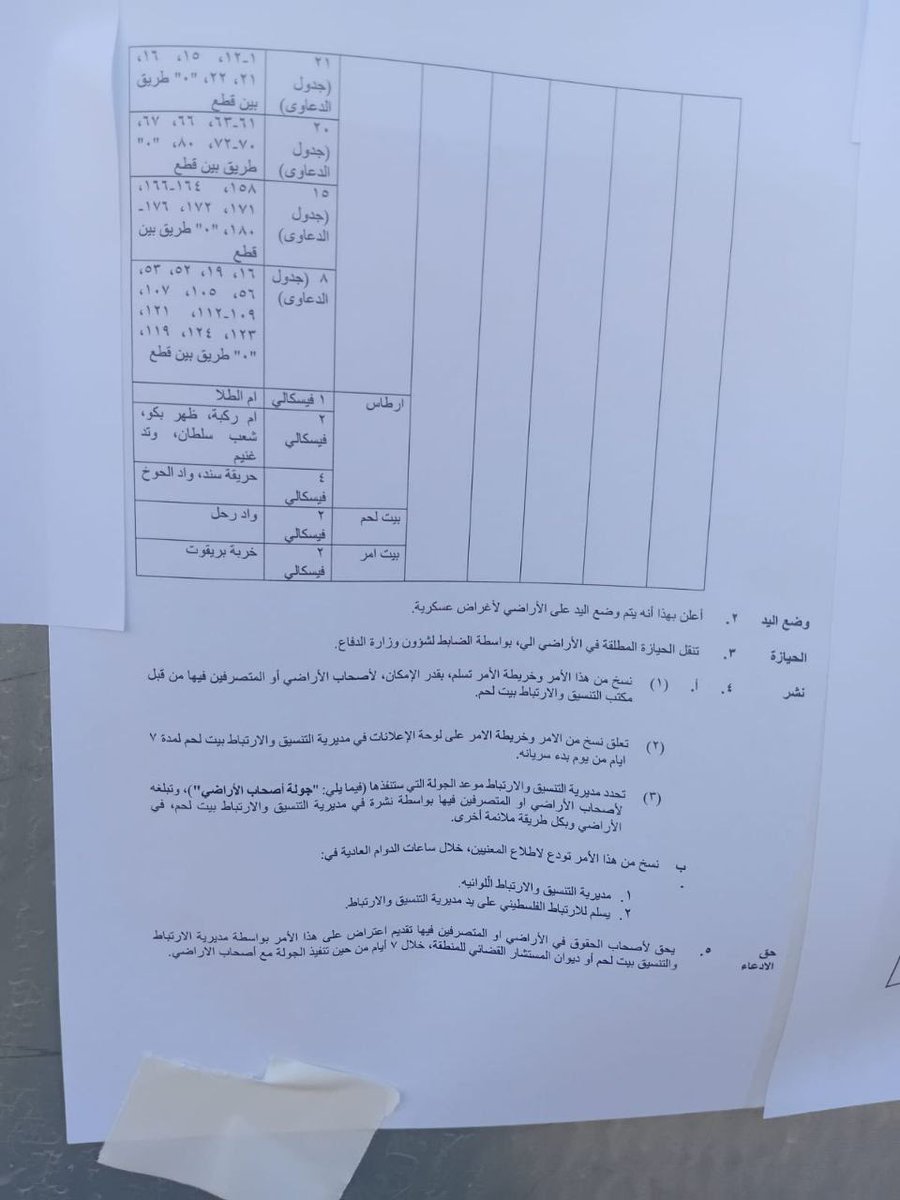 ٢١ (جدول الدعاوى)
١-١٢، ١٥، ١٦،
٢١، ٢٢، "٠" طريق
بين قطع
٢٠ (جدول الدعاوى)
٦١-٦٣، ٦٦، ٦٧،
٧٠-٧٢، ٨٠، "٠"
طريق بين قطع
١٥ (جدول الدعاوى)
١٥٨، ١٦٤-١٦٦،
١٧١، ١٧٢، ١٧٦-
١٨٠، "٠" طريق بين
قطع
٨ (جدول الدعاوى)
١٦، ١٩، ٥٢، ٥٣،
٥٦، ١٠٥، ١٠٧،
١٠٩-١١٢، ١٢١،
١٢٣، ١٢٤، ١١٩،
"٠" طريق بين قطع
ارطاس
١ فيسكالي
ام الطلا
٢ فيسكالي
ام ركبة، ظهر بكو،
شعب سلطان، وتد
غنيم
٤ فيسكالي
حريقة سند، واد الحوخ
بيت لحم
٢ فيسكالي
واد رحل
بيت امر
٢ فيسكالي
خربة بريقوت
وضع اليد ٢. أعلن بهذا أنه يتم وضع اليد على الأراضي لأغراض عسكرية.
الحيازة ٣. تنقل الحيازة المطلقة في الأراضي الي، بواسطة الضابط لشؤون وزارة الدفاع.
نشر ٤. أ. (١) نسخ من هذا الأمر وخريطة الأمر تسلم، بقدر الإمكان، لأصحاب الأراضي أو المتصرفين فيها من قبل
مكتب التنسيق والارتباط بيت لحم.
(٢) تعلق نسخ من الامر وخريطة الامر على لوحة الإعلانات في مديرية التنسيق والارتباط بيت لحم لمدة ٧
ايام من يوم بدء سريانه.
(٣) تحدد مديرية التنسيق والارتباط موعد الجولة التي ستنفذها (فيما يلي: "جولة أصحاب الأراضي")، وتبلغه
لأصحاب الأراضي او المتصرفين فيها بواسطة نشرة في مديرية التنسيق والارتباط بيت لحم، في
الأراضي وبكل طريقة ملائمة أخرى.
ب. نسخ من هذا الأمر تودع لاطلاع المعنيين، خلال ساعات الدوام العادية في:
١. مديرية التنسيق والارتباط اللوائيه.
٢. يسلم للارتباط الفلسطيني على يد مديرية التنسيق والارتباط.
حق الادعاء ٥. يحق لأصحاب الحقوق في الأراضي او المتصرفين فيها تقديم اعتراض على هذا الأمر بواسطة مديرية الارتباط
والتنسيق بيت لحم أو ديوان المستشار القضائي للمنطقة، خلال ٧ أيام من حين تنفيذ الجولة مع أصحاب الاراضي.